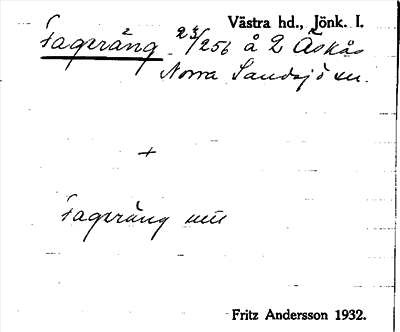 Västra hd., Jönk. l.
Fageräng 23/256 å 2 Äskås
Norra Sandsjö sn.
+
Fageräng
Fritz Andersson 1932.